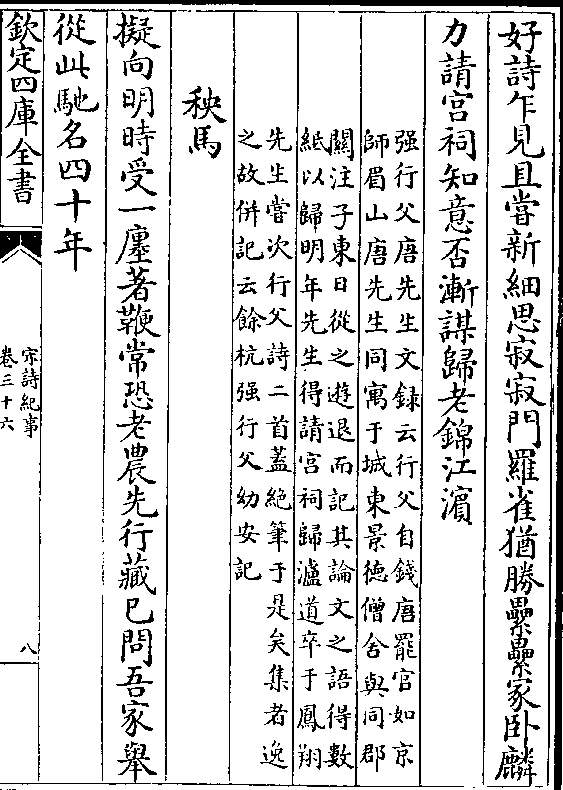 好詩乍見且嘗新細思寂寂門羅雀猶勝纍纍冢卧麟
力請宫祠知意否漸謀歸老錦江濵
强行父唐先生文録云行父自錢唐罷官如京
師眉山唐先生同寓于城東景德僧舍與同郡
關注子東日從之遊退而記其論文之語得數
紙以歸明年先生得請宫祠歸瀘道卒于鳳翔
先生嘗次行父詩二首蓋絶筆于是矣集者逸
之故併記云餘杭强行父幼安記
秧馬
擬向明時受一廛著鞭常恐老農先行藏已問吾家舉
從此馳名四十年
欽定四庫全書
宋詩紀事
卷三十六
八